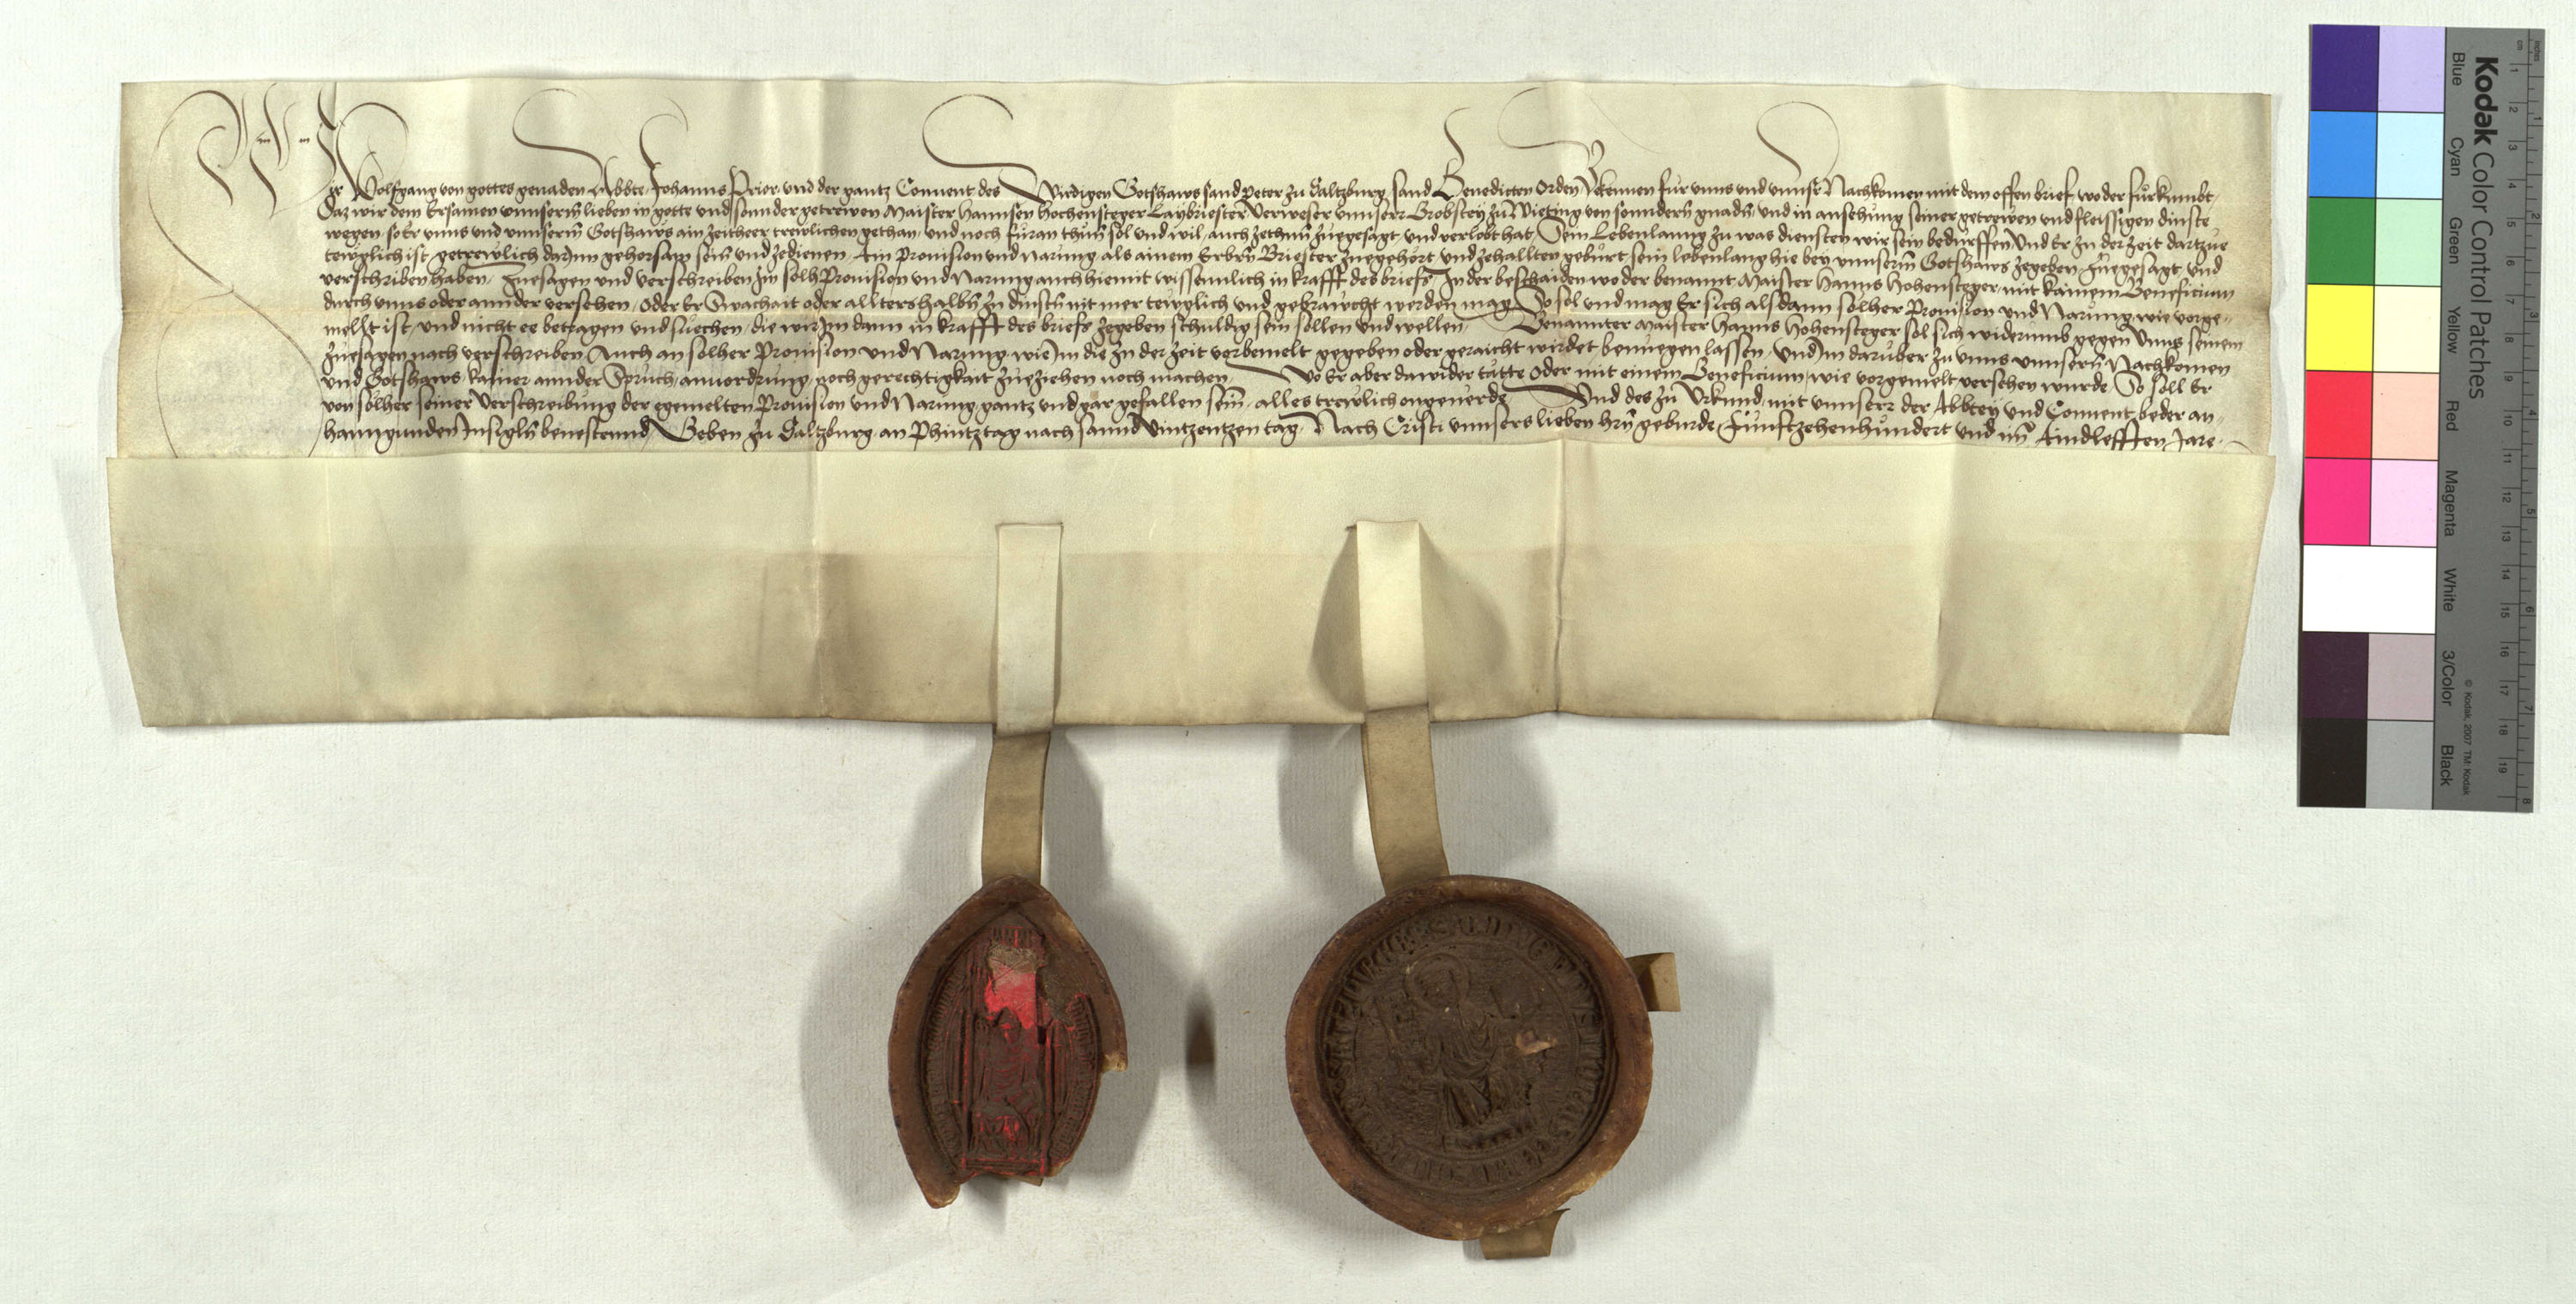 Wir Wolfganng von gottes genaden Abbte, Johanns Prior, und der gantz Convent des Wirdigen Gotshaws sand Peter zu Saltzburg sand Benedicten Orden Bekennen fur unns und unnser Nachkomen mit dem offen brief wo der fürkumbt,
Daz wir dem Ersamen unnserm lieben in gotte und sonnder getrewen Maister Hannsen Hochensteger Laybriester Verweser unnserr Brobstey zu Wieting von sonndern gnadn und in ansehung seiner getrewen und fleissigen dinste
wegen, so Er unns und unnserm Gotshaws ain zeitheer trewlichen gethan, und noch füran thun sol und wil, auch zethun zuegesagt und verlobt hat, Sein Lebenlanng zu was diensten wir sein bedurffen Und Er zu der zeit dartzue
tewglich ist, getrewlich darinn gehorsam sein und zedienen, Ain Provision und Narung als ainem Erbern Briester zuegehort und zehallten gebürt sein lebenlang hie bey unnserm Gotshaws zegeben zuegesagt und
verschriben haben, Zuesagen und verschreiben Im solh Provision und Narung auch hiemit wissenntlich in krafft des briefs, In der beschaiden wo der benannt Maister Hanns Hohensteger mit kainem Beneficium
durch unns oder annder versehen, Oder Er Swachait oder allters halbn zu dinstn nit mer tewglich und gebrawcht werden mag, So sol und mag Er sich alsdann solher Provision und Narung, wie vorge-
mellt ist, und nicht ee betragen und suechen, die wir Im dann in krafft des briefs zegeben schuldig sein sollen und wellen, Benannter Maister Hanns Hohensteger sol sich widerumb gegen Unns seinem
zuesagen nach verschreiben, Auch an solher Provision und Narung, wie Im die zu der zeit vorbemelt gegeben oder geraicht wirdet benuegen lassen, Und Im daruber zu unns unnsern Nachkomen
und Gotshaws, kainer annder Spruch, anvordrung, noch gerechtigkait zueziehen noch machen, Wo Er aber dawider tätte Oder mit einem Beneficium, wie vorgemelt versehen wurde, So soll Er
von solher seiner Verschreibung der egemelten Provision und Narung, gantz und gar gefallen sein, alles trewlich ongeverde, Und des zu Urkund, mit unnserr der Abbtey und Convent beder an-
hanngunden Insigln bevestennd, Geben zu Saltzburg, an Phintztag nach sannd Vintzentzen tag, Nach Cristi unnsers lieben hrn geburde, Funftzehenhundert und im Aindlefften Jare.
Kodak Color Control Patches
Blue Cyan Green Yellow Red Magenta White 3/Color Black
© Kodak, 2007 TM: Kodak
inches 1 2 3 4 5 6 7 8
cm 1 2 3 4 5 6 7 8 9 10 11 12 13 14 15 16 17 18 19